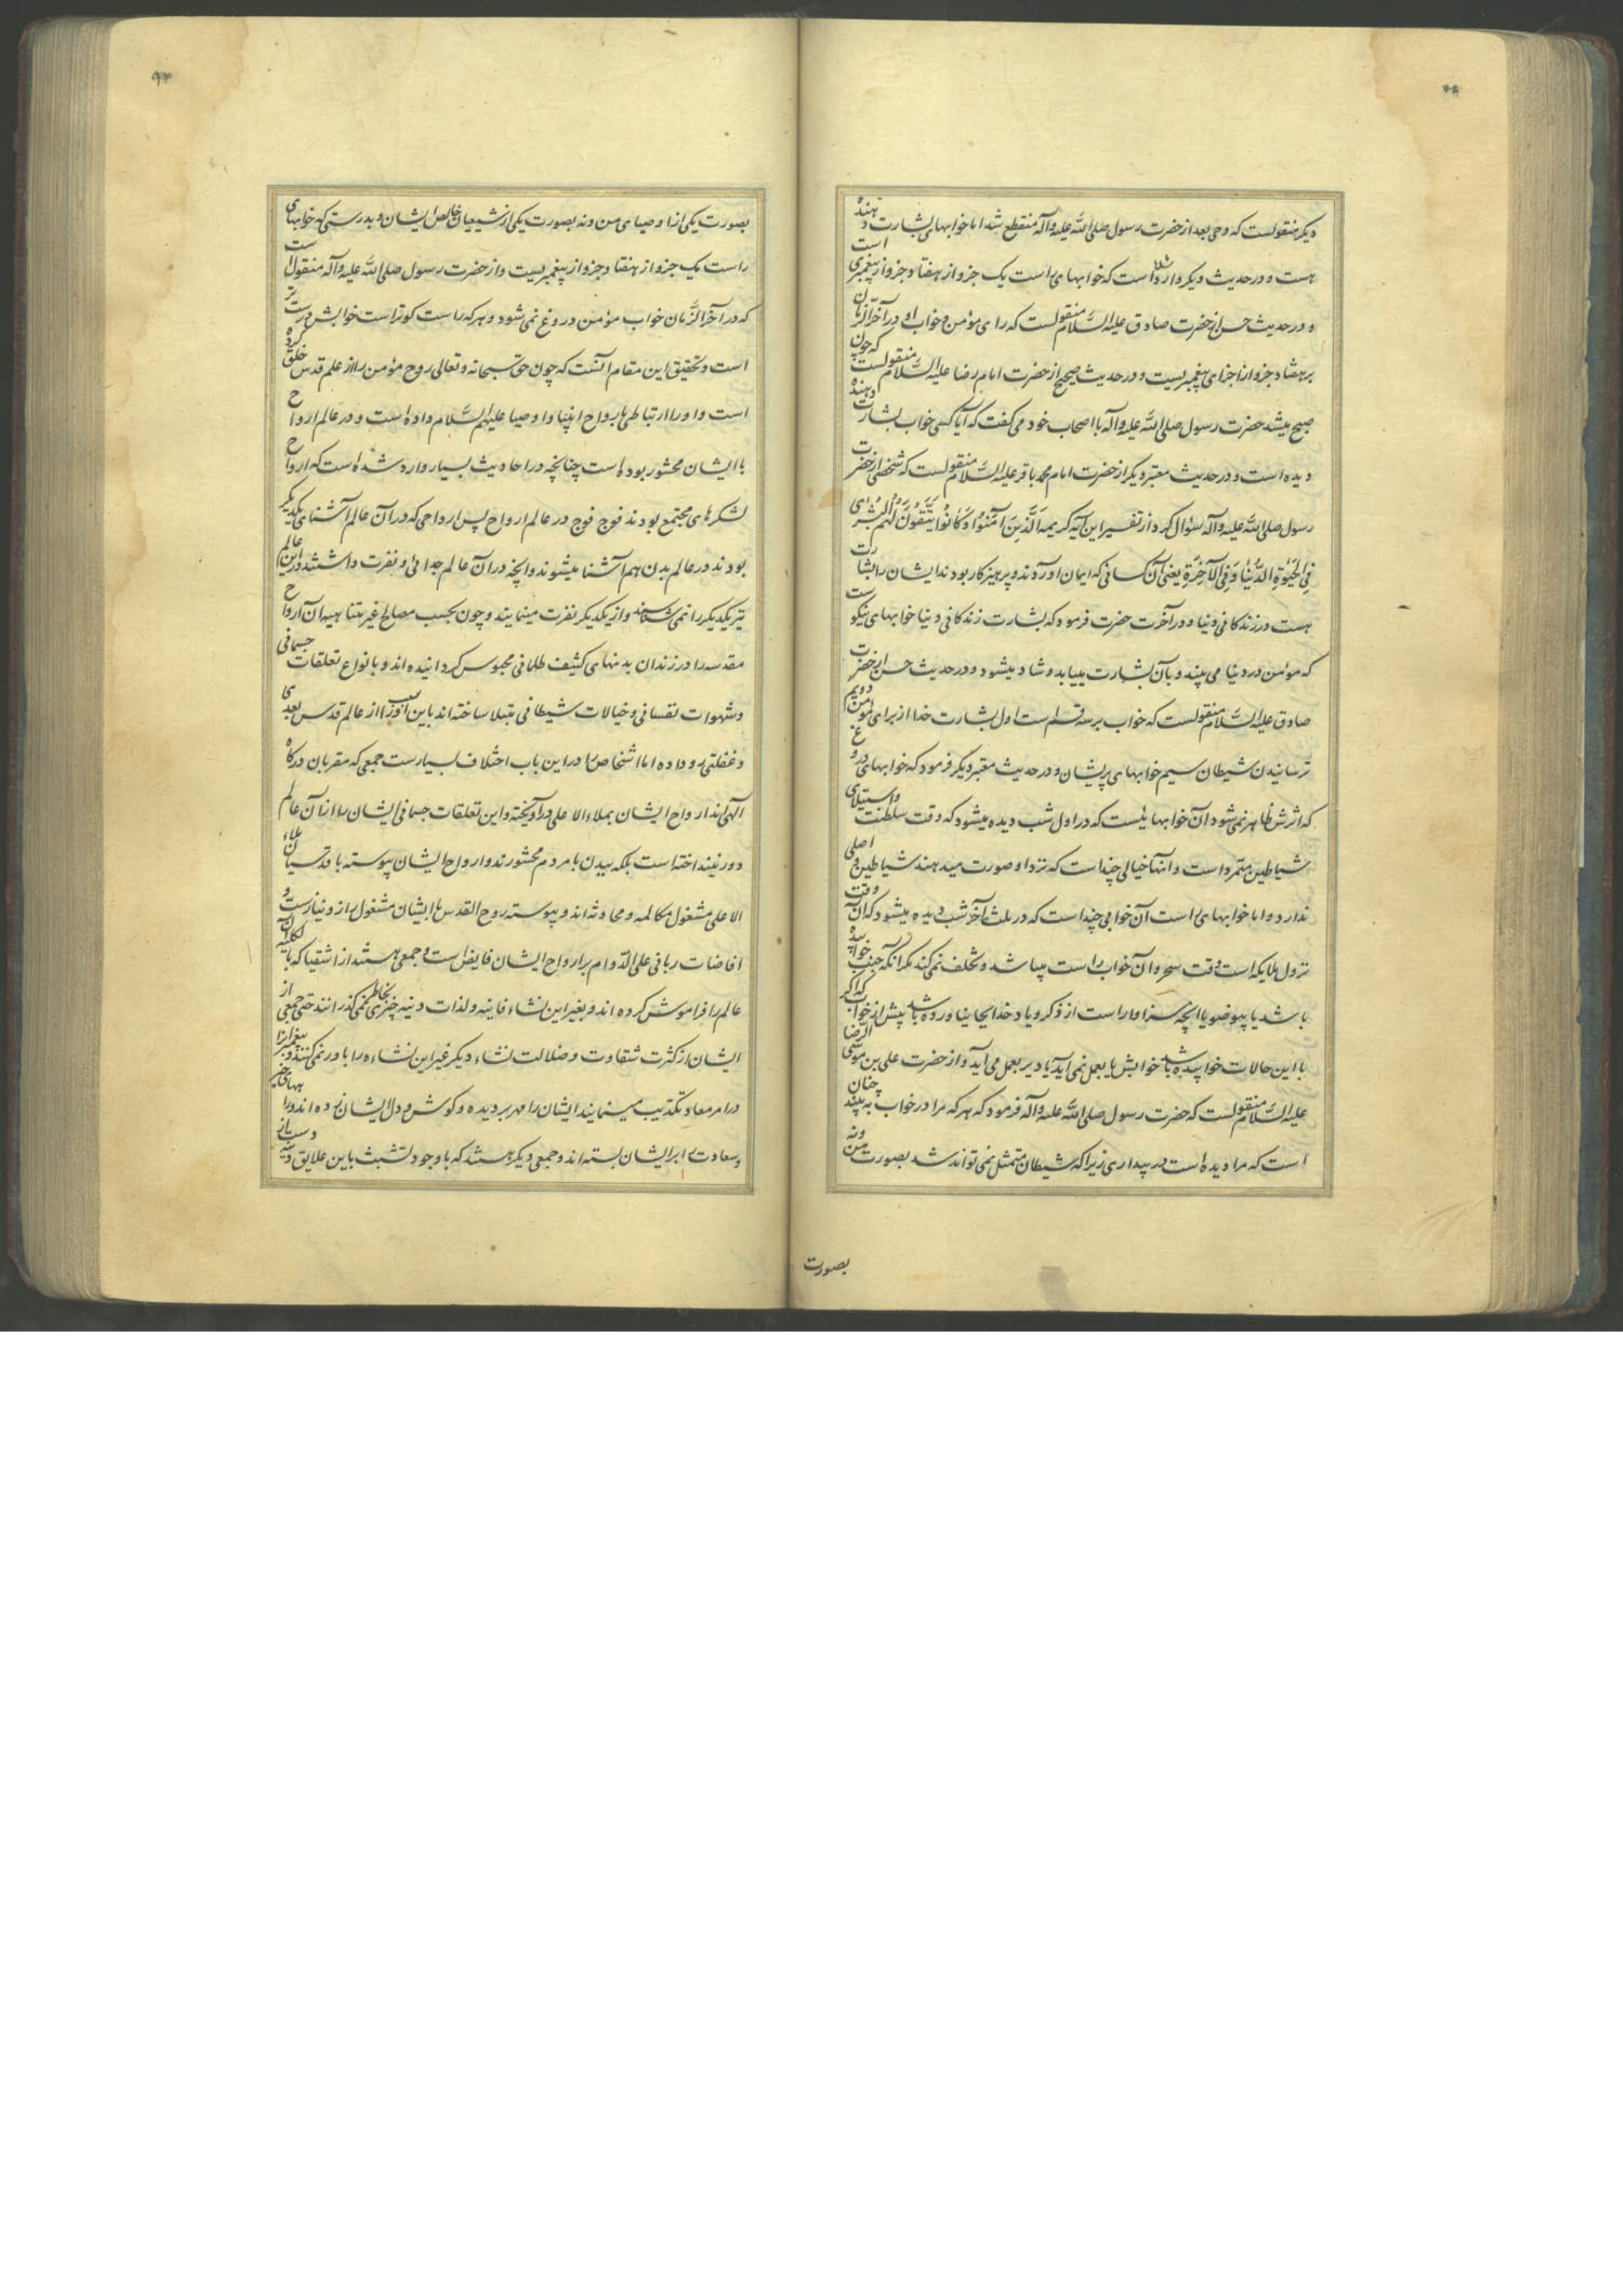 دیکر منقولست که وحی بعد از حضرت رسول صلی الله علیه وآله منقطع شد اما خوابهای بشارت دهنده
هست و در حدیث دیکر وارد شده است که خوابهای راست یک جزو از هفتاد جزو از پیغمبری است
و در حدیث حسن از حضرت صادق علیه السلام منقولست که رای مؤمن و خواب او در آخر الزمان
بر هفتاد جزو از اجزای پیغمبریست و در حدیث صحیح از حضرت امام رضا علیه السلام منقولست که چون
صبح میشد حضرت رسول صلی الله علیه وآله با اصحاب خود می کفت که آیا کسی خواب بشارت دهنده
دیده است و در حدیث معتبر دیکر از حضرت امام محمد باقر علیه السلام منقولست که شخصی از حضرت
رسول صلی الله علیه وآله سؤال کرد از تفسیر این آیه کریمه اَلَّذِینَ آمَنُوا وَکَانُوا یَتَّقُونَ لَهُمُ الْبُشْرٰی
فِی الْحَیٰوةِ الدُّنْیٰا وَفِی الْآخِرَةِ یعنی آن کسانی که ایمان آوردند و پرهیزکار بودند ایشان را بشارت
هست در زندکانی دنیا و در آخرت حضرت فرمود که بشارت زندکانی دنیا خوابهای نیکوست
که مؤمن در دنیا می بیند و بآن بشارت مییابد و شاد میشود و در حدیث حسن از حضرت
صادق علیه السلام منقولست که خواب بر سه قسم است اول بشارت خدا از برای مؤمن دویم
ترسانیدن شیطان سیم خوابهای پریشان و در حدیث معتبر دیکر فرمود که خوابهای دروغ
که اثرش ظاهر نمی شود آن خوابهایست که در اول شب دیده میشود که وقت سلطنت و استیلای
شیاطین متمرد است و آنها خیالی چند است که نزد او صورت میدهند شیاطین و اصلی
ندارد و اما خوابهای راست آن خوابی چند است که در ثلث آخر شب دیده میشود که آن وقت
نزول ملایکه است وقت سحر و آن خواب راست میباشد و تخلف نمی کند مکر آنکه جنب خوابیده
باشد یا بیوضو یا آنچه سزاوار است از ذکر و یاد خدا بجا نیاورده باشد پیش از خواب که اکر
با این حالات خوابیده باشد خوابش یا بعمل نمی آید یا دیر بعمل می آید و از حضرت علی بن موسی الرضا
علیه السلام منقولست که حضرت رسول صلی الله علیه وآله فرمود که هر که مرا در خواب به بیند چنان
است که مرا دیده است در بیداری زیرا که شیطان متمثل نمی تواند شد بصورت من و نه
بصورت
بصورت یکی از اوصیای من و نه بصورت یکی از شیعیان خالص ایشان و بدرستی که خوابهای
راست یک جزو از هفتاد جزو از پیغمبریست و از حضرت رسول صلی الله علیه وآله منقولست
که در آخر الزمان خواب مؤمن دروغ نمی شود و هر که راست کوتر است خوابش درست تر
است و تحقیق این مقام آنست که چون حق سبحانه و تعالی روح مؤمن را از علم قدس خلق کرده
است و او را ارتباطی با رواح انبیا و اوصیا علیهم السلام داده است و در عالم ارواح
با ایشان محشور بوده است چنانچه در احادیث بسیار وارد شده است که ارواح
لشکرهای مجتمع بودند فوج فوج در عالم ارواح پس ارواحی که در آن عالم آشنای یکدیکر
بودند در عالم بدن هم آشنا میشوند و آنچه در آن عالم جدائی و نفرت داشتند در این عالم
نیز یکدیکر را نمی شناسند و از یکدیکر نفرت مینمایند و چون بحسب مصالح غیر متناهیه آن ارواح
مقدسه را در زندان بدنهای کثیف ظلمانی محبوس کردانیده اند و بانواع تعلقات جسمانی
و شهوات نفسانی و خیالات شیطانی مبتلا ساخته اند باین سبب از عالم قدس بعدی
و غفلتی رو داده اما اشخاص در این باب اختلاف بسیارست جمعی که مقربان درکاه
الهی اند ارواح ایشان بملاء الاعلی در آویخته و این تعلقات جسمانی ایشان را از آن عالم
دور نینداخته است بلکه ببدن با مردم محشورند و ارواح ایشان پیوسته با قدسیان ملاء
الاعلی مشغول مکالمه و محادثه اند و پیوسته روح القدس با ایشان مشغول راز و نیازست و
افاضات ربانی علی الدوام بر ارواح ایشان فایض است و جمعی هستند از اشقیا که بالکلیه آن
عالم را فراموش کرده اند و بغیر این نشاء فانیه و لذات دنیه چیزی بخاطر نمی کذرانند حتی جمعی از
ایشان از کثرت شقاوت و ضلالت نشاء دیکر غیر این نشاء را باور نمی کنند و پیغمبران را
در امر معاد تکذیب مینمایند ایشان را مهر بر دیده و کوش و دل ایشان زده اند و راههای خیر
و سعادت را بر ایشان بسته اند و جمعی دیکر هستند که با وجود تشبث باین علایق دنیه دست از